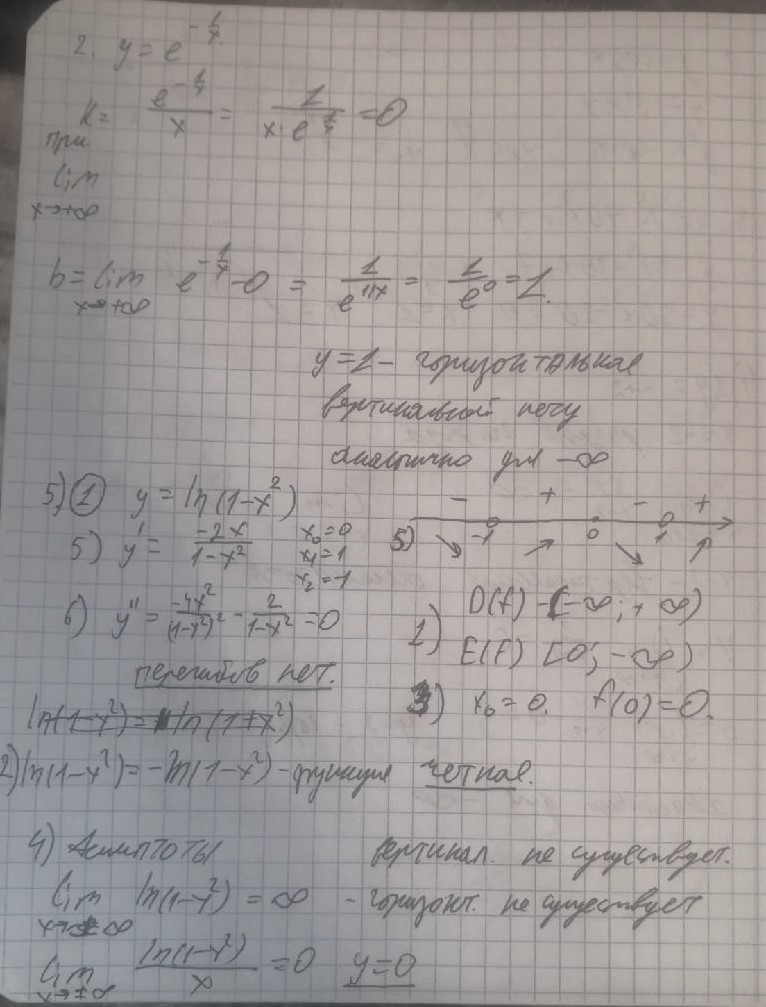 2. y = e^{-1/x}
K = e^{-1/x} / x = 1 / (x · e^{1/x}) = 0
при
lim
x→+∞
b = lim e^{-1/x} - 0 = 1 / e^{1/x} = 1 / e^0 = 1.
x→+∞
y = 1 - горизонтальная
вертикальной нету
аналогично для -∞
5) ① y = ln(1-x²)
5) y' = -2x / (1-x²) x₀=0 x₁=1 x₂=-1
5) - + - + -1 0 1
6) y'' = -4x² / (1-x²)² - 2 / (1-x²) = 0
перегибов нет.
1) D(f) - (-∞; +∞)
E(f) [0; -∞)
3) x₀ = 0. f(0) = 0.
ln(1-x²) = ln(1+x²)
2) ln(1-x²) = -ln(1-x²) - функция четная.
4) Асимптоты вертикал. не существует.
lim ln(1-x²) = ∞ - горизонт. не существует
x→±∞
lim ln(1-x²) / x = 0 y=0
x→±∞